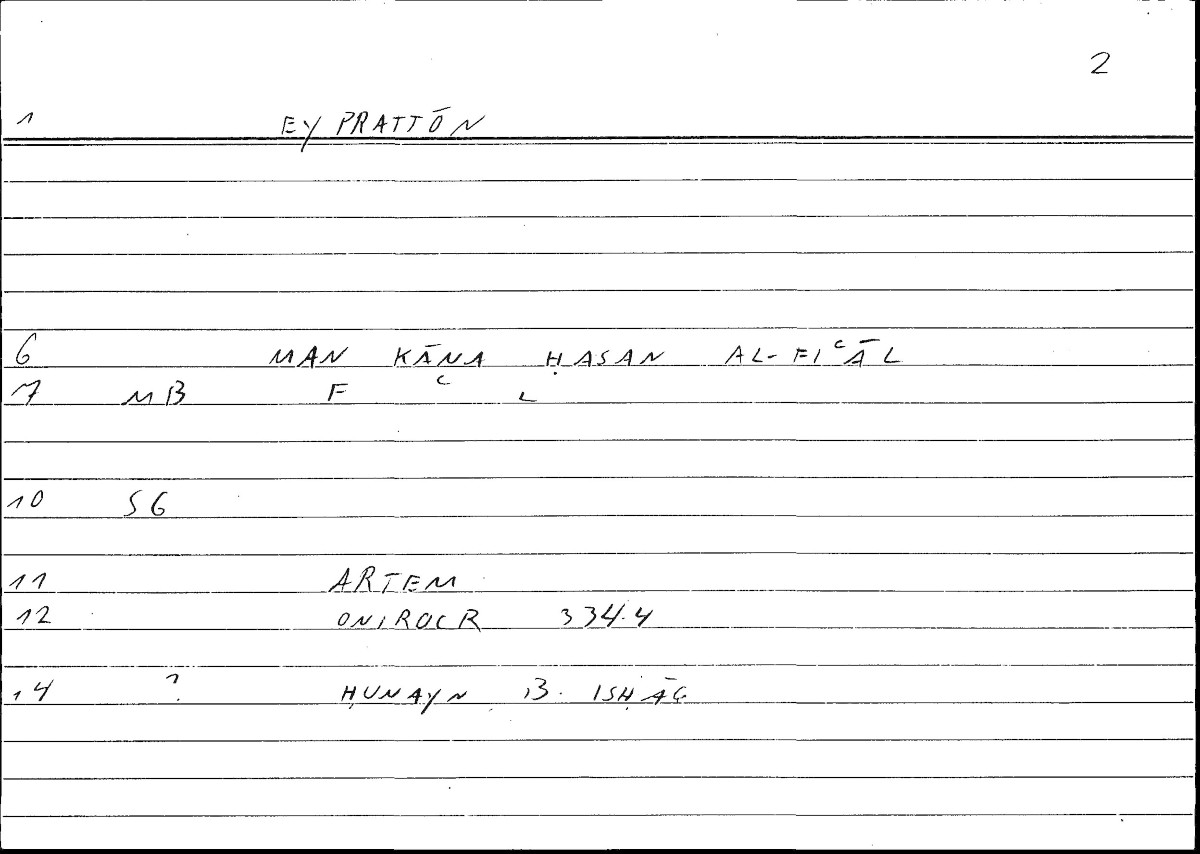 2
1 EY PRATTŌN
6 MAN KĀNA ḤASAN AL-FIᶜĀL
7 MB F ᶜ L
10 SG
11 ARTEM
12 ONIROCR 334.4
14 ? ḤUNAYN B. ISḤĀG